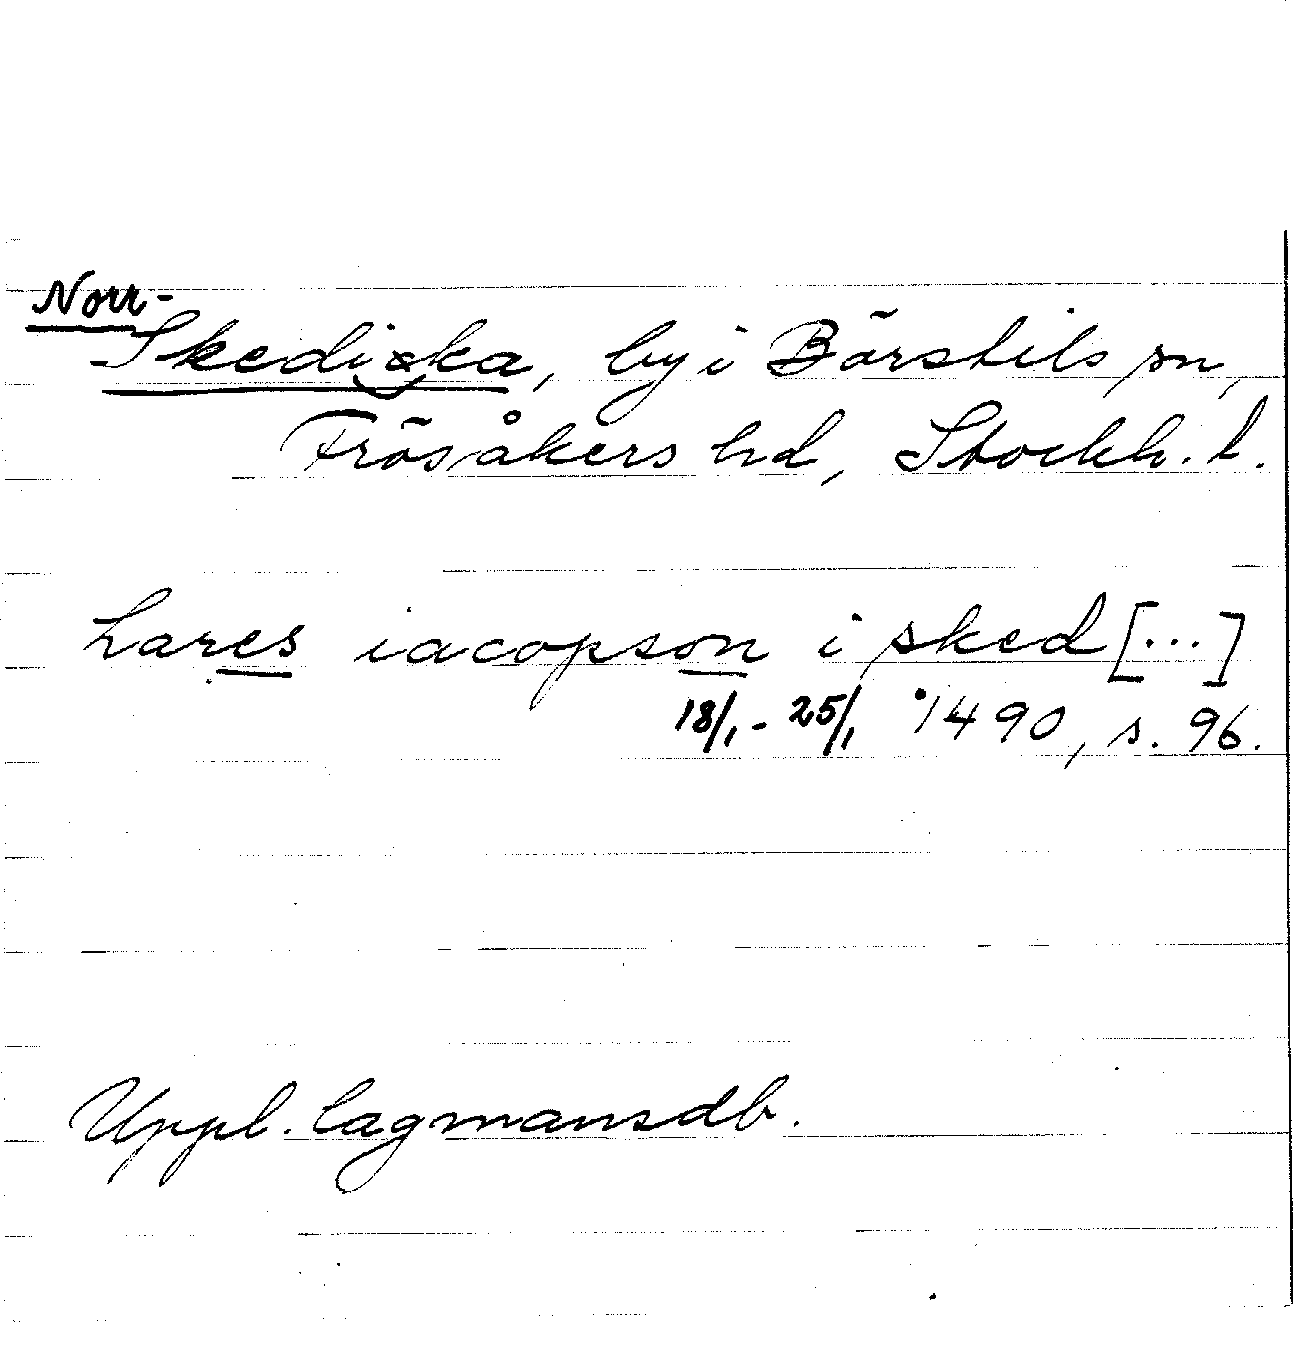 Norr-
Skedika, by i Börstils sn,
Frösåkers hd, Stockh. l.
lares iacopson i sked[...]
18/1 - 25/1 1490, s. 96.
Uppl. lagmansdb.